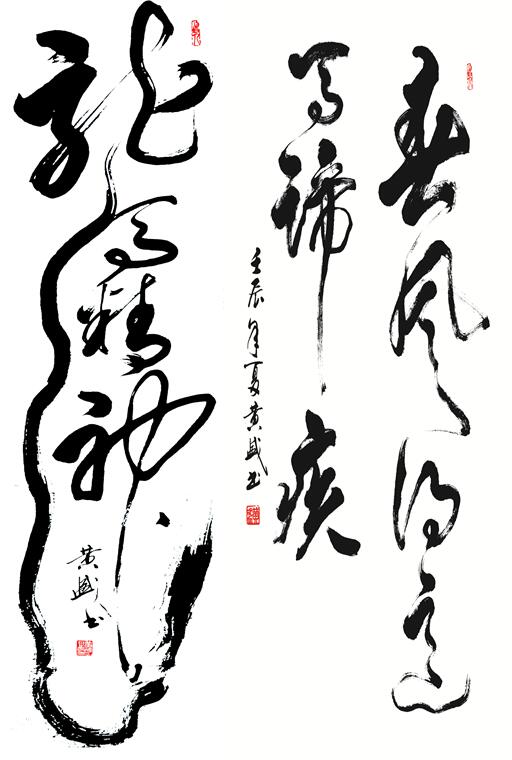 春風得意
馬蹄疾
壬辰年夏黄盛書
龍馬精神
黄盛書